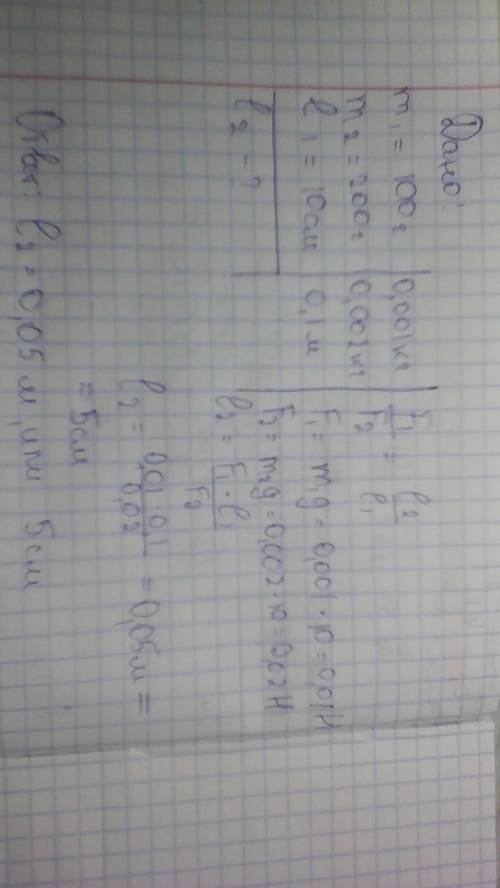 Дано:
m₁ = 100г | 0,001кг
m₂ = 200г | 0,002кг
l₁ = 10см | 0,1м
l₂ - ?
F₁/F₂ = l₂/l₁
F₁ = m₁g = 0,001 · 10 = 0,01Н
F₂ = m₂g = 0,002 · 10 = 0,02Н
l₂ = F₁ · l₁/F₂
l₂ = 0,01 · 0,1/0,02 = 0,05м =
= 5см
Ответ: l₂ = 0,05м, или 5см